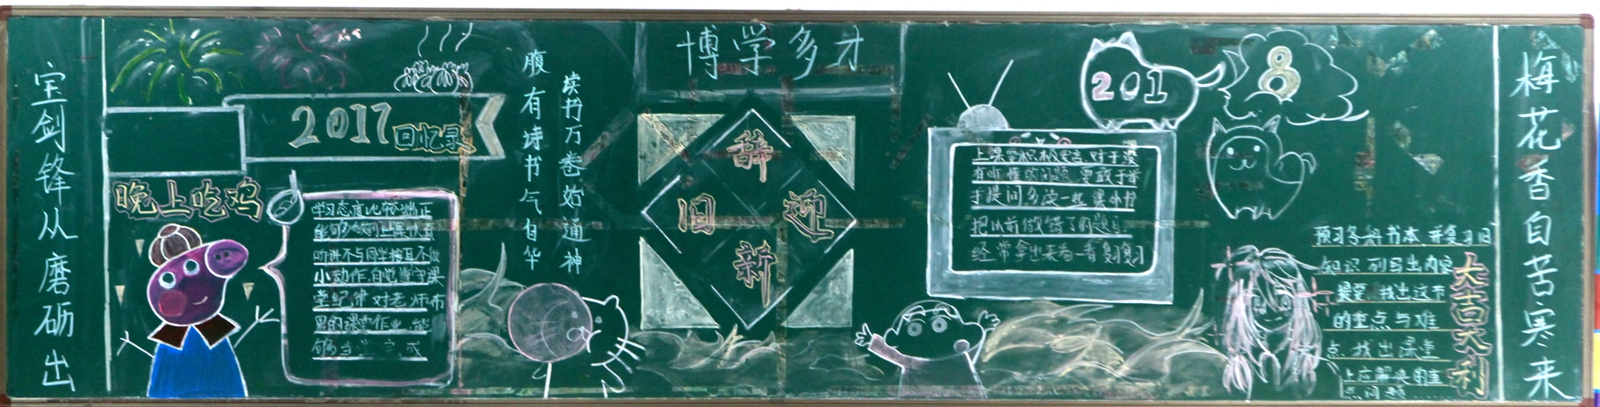 宝剑锋从磨砺出
2017回忆录
晚上吃鸡
学习态度比较端正
能够
听讲不与同学接耳不做
小动作.自觉遵守课
堂纪律 对老师布
置的课堂作业,能
够当堂完成
腹有诗书气自华
读书万卷始通神
博学多才
辞
旧
迎
新
2018
上课学积极发言,对于没
有听懂的问题,要敢于举
手提问多读一些课外书
把以前做错了的题目
经常拿出来看一看复习复习
预习各科书本 并复习旧
知识 列写出内容
提要.找出这节
的重点与难
点.找出课堂
上应解决的重
点问题
大吉大利
梅花香自苦寒来